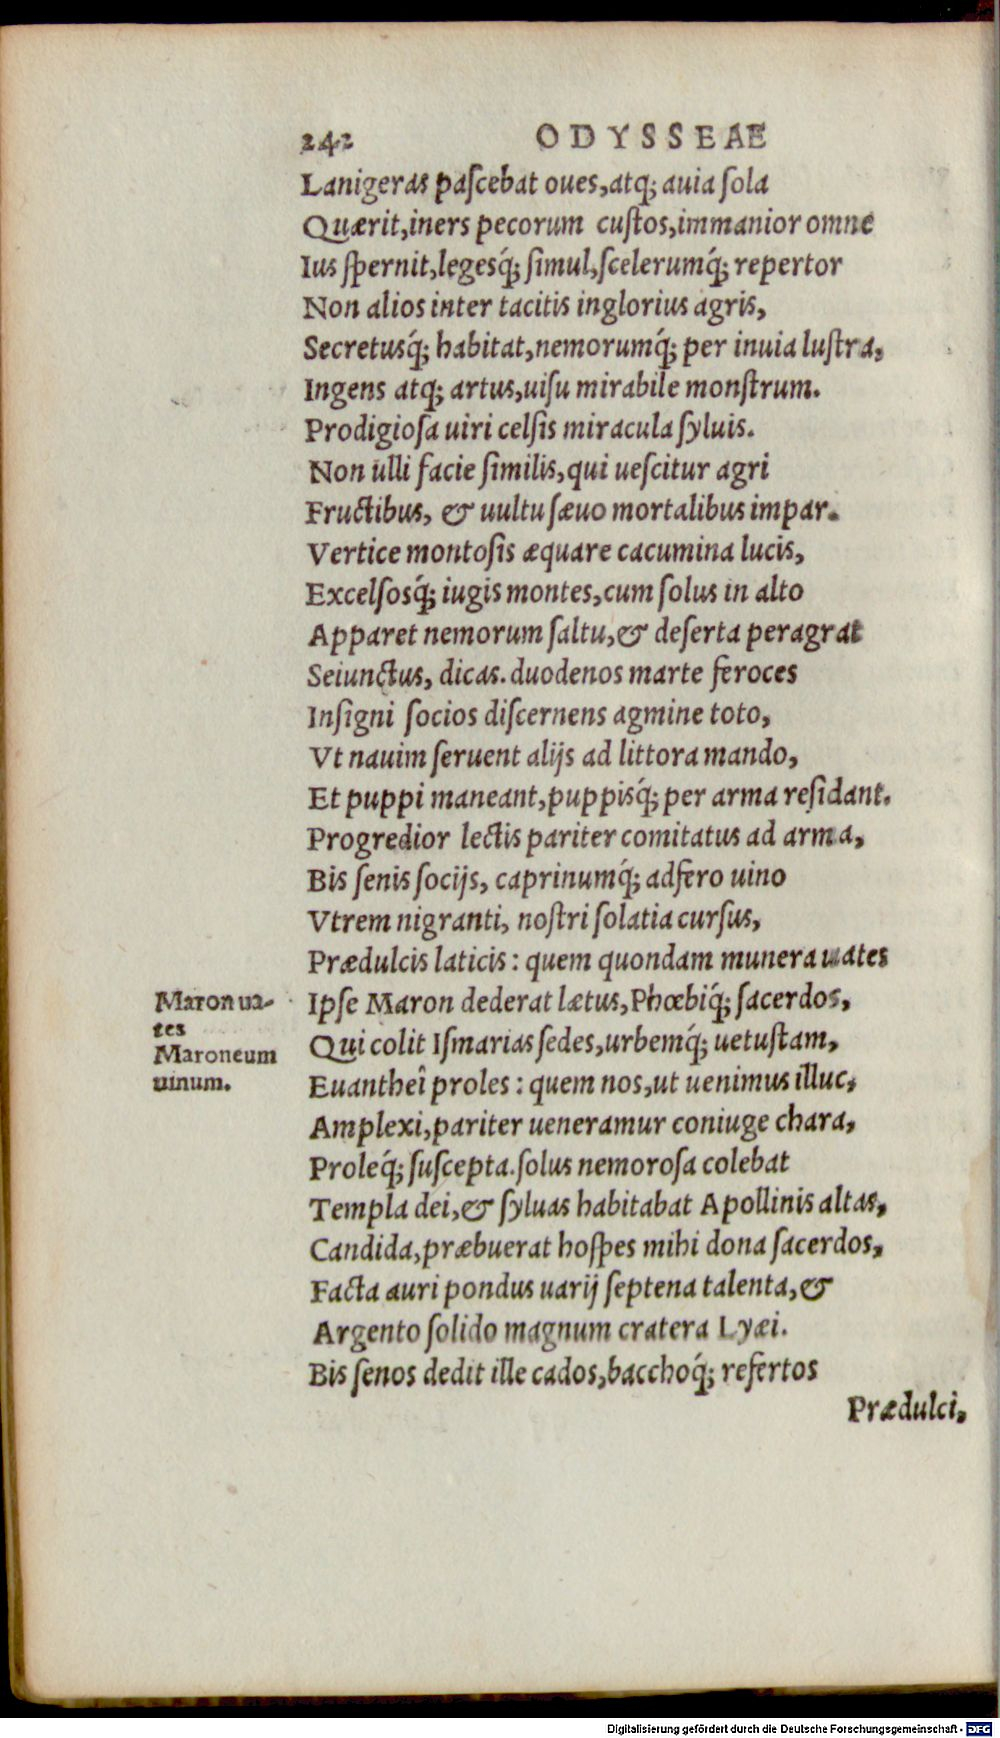 242 ODYSSEAE
Lanigeras paſcebat oues,atq; auia ſola
Quærit,iners pecorum cuſtos,immanior omne
Ius ſpernit,legesq́; ſimul,ſcelerumq́; repertor
Non alios inter tacitis inglorius agris,
Secretusq́; habitat,nemorumq́; per inuia luſtra,
Ingens atq; artus,uiſu mirabile monſtrum.
Prodigioſa uiri celſis miracula ſyluis.
Non ulli facie ſimilis,qui ueſcitur agri
Fructibus, & uultu ſæuo mortalibus impar.
Vertice montoſis æquare cacumina lucis,
Excelſosq́; iugis montes,cum ſolus in alto
Apparet nemorum ſaltu,& deſerta peragrat
Seiunctus, dicas. duodenos marte feroces
Inſigni ſocios diſcernens agmine toto,
Vt nauim ſeruent alijs ad littora mando,
Et puppi maneant,puppisq́; per arma reſidant.
Progredior lectis pariter comitatus ad arma,
Bis ſenis ſocijs, caprinumq́; adfero uino
Vtrem nigranti, noſtri ſolatia curſus,
Prædulcis laticis : quem quondam munera uates
Maron ua-
tes
Maroneum
uinum.
Ipſe Maron dederat lætus,Phœbiq́; ſacerdos,
Qui colit Iſmarias ſedes,urbemq́; uetuſtam,
Euantheî proles : quem nos,ut uenimus illuc,
Amplexi,pariter ueneramur coniuge chara,
Proleq́; ſuſcepta.ſolus nemoroſa colebat
Templa dei,& ſyluas habitabat Apollinis altas,
Candida,præbuerat hoſpes mihi dona ſacerdos,
Facta auri pondus uarij ſeptena talenta,&
Argento ſolido magnum cratera Lyæi.
Bis ſenos dedit ille cados,bacchoq́; refertos
Prædulci,
Digitalisierung gefördert durch die Deutsche Forschungsgemeinschaft - DFG